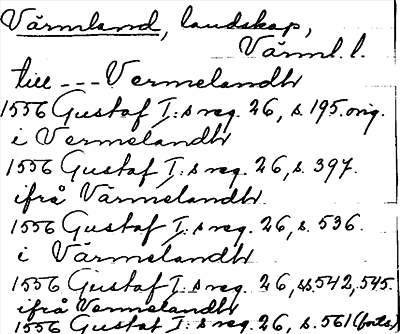 Värmland, landskap,
Värml. l.
till --- Vermelandh
1556 Gustaf I:s reg. 26, s. 195. orig.
i Vermelandh
1556 Gustaf I:s reg. 26, s. 397.
ifrå Värmelandh.
1556 Gustaf I:s reg. 26, s. 536.
i Värmelandh.
1556 Gustaf I:s reg. 26, ss. 542, 545.
ifrå Vermelandh
1556 Gustaf I:s reg. 26, s. 561 (forts.)